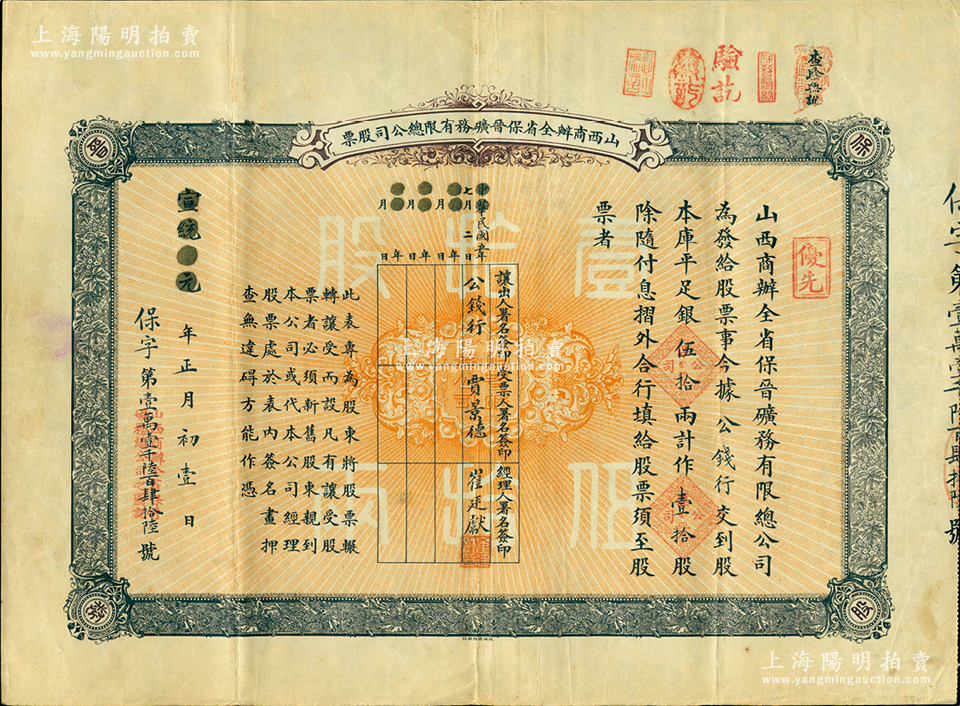 上海陽明拍賣
www.yangmingauction.com
上海陽明拍賣
www.yangmingauction.com
驗訖
查驗無訛
山西商辦全省保晉礦務有限總公司股票
保
晉
股
優先
山西商辦全省保晉礦務有限總公司
為發給股票事今據 公錢行交到股
本庫平足銀伍拾兩計作壹拾股
除隨付息摺外合行填給股票須至股
票者
壹拾股
伍拾兩
中華民國五年七月二日
年 月 日
年 月 日
年 月 日
讓出人署名簽印 公錢行
受票人署名簽印 賈景德
經理人署名簽印 崔廷獻
此表專為股東將股票輾
轉讓受而設凡有讓受股
票者必須新舊股東親到
本公司或代本公司經理
股票處於表內簽名畫押
查無違碍方能作憑
宣統元年正月初壹日
保字第壹萬壹千陸百肆拾陸號
上海陽明拍賣
www.yangmingauction.com
上海陽明拍賣
www.yangmingauction.com